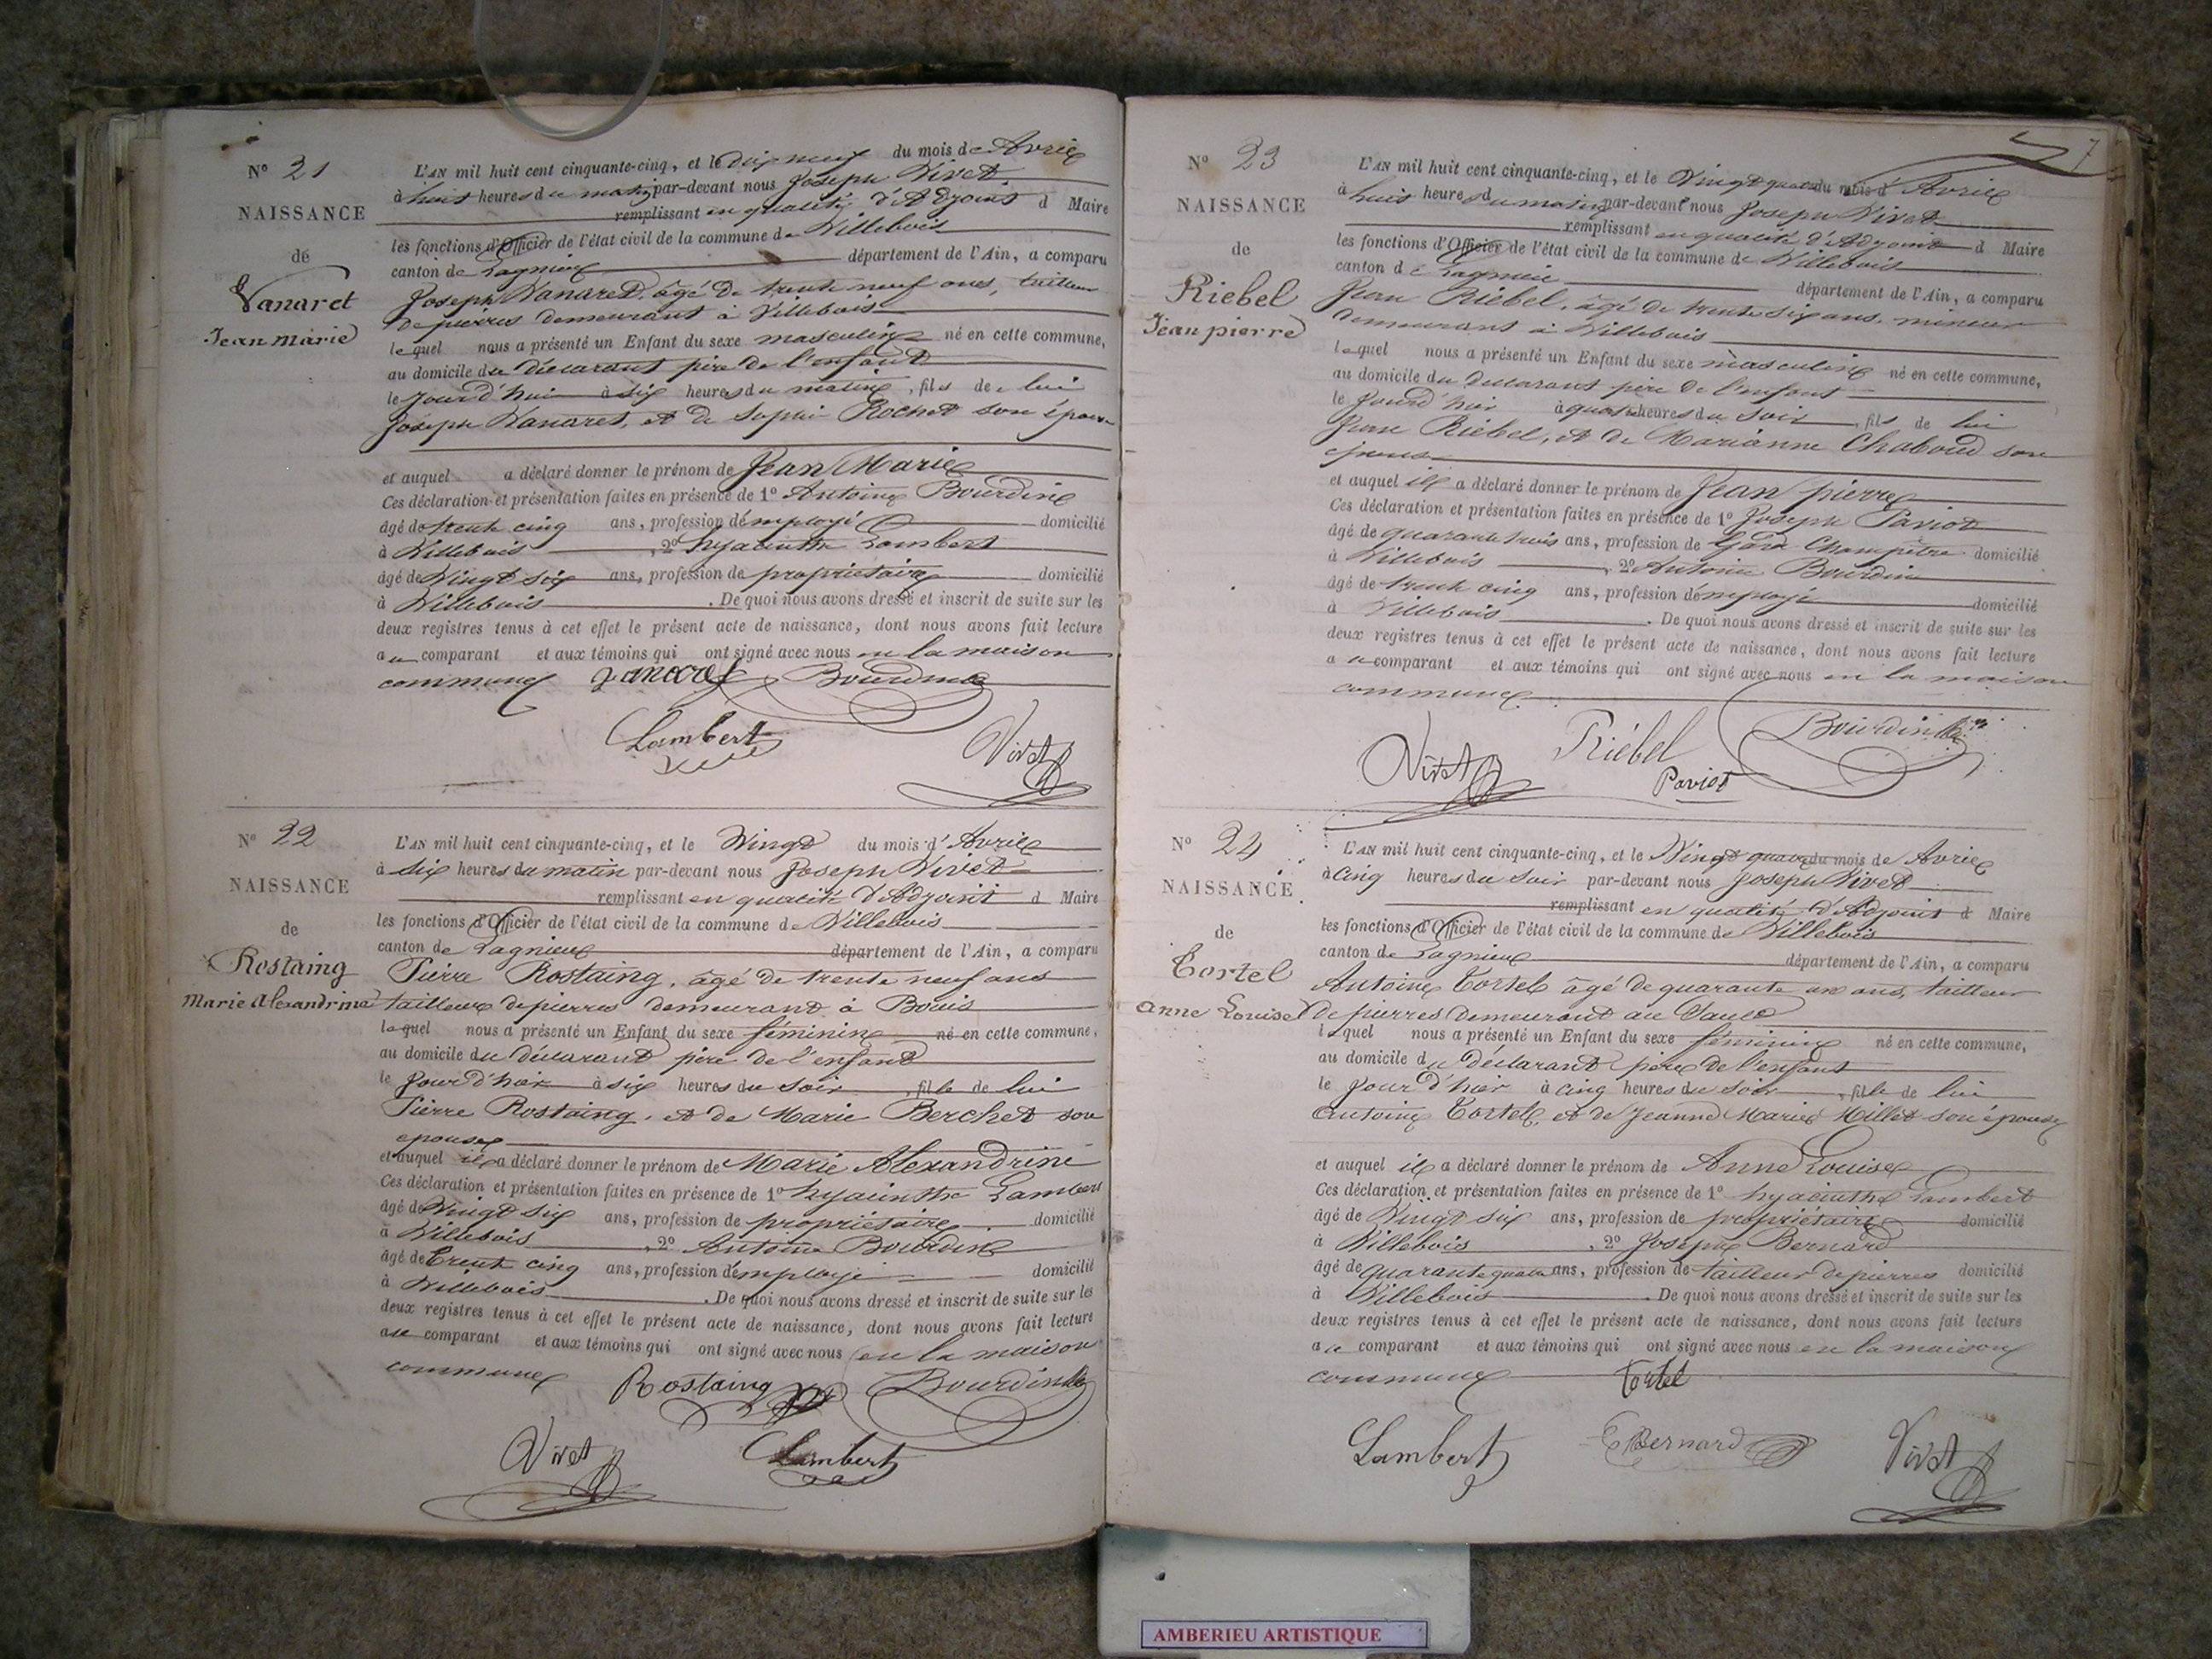 N° 21
NAISSANCE
de
Vanaret
Jean Marie
L'AN mil huit cent cinquante-cinq, et le dix neuf du mois de Avril
à huit heures du matin par-devant nous Joseph Vivet
remplissant en qualité d'Adjoint d Maire
les fonctions d'Officier de l'état civil de la commune de Villebois
canton de Lagnieu département de l'Ain, a comparu
Joseph Vanaret, âgé de trente neuf ans, tailleur
de pierres demeurant à Villebois
lequel nous a présenté un Enfant du sexe masculin né en cette commune,
au domicile du déclarant père de l'enfant
le jourd'hui à six heures du matin, fils de lui
Joseph Vanaret, et de Sophie Rochet son épouse
et auquel a déclaré donner le prénom de Jean Marie
Ces déclaration et présentation faites en présence de 1° Antoine Bourdin
âgé de trente cinq ans, profession d'employé domicilié
à Villebois, 2° hyacinthe Lambert
âgé de Vingt six ans, profession de propriétaire domicilié
à Villebois. De quoi nous avons dressé et inscrit de suite sur les
deux registres tenus à cet effet le présent acte de naissance, dont nous avons fait lecture
au comparant et aux témoins qui ont signé avec nous en la maison
commune Bourdin
Lambert Vivet
N° 22
NAISSANCE
de
Rostaing
Marie Alexandrine
L'AN mil huit cent cinquante-cinq, et le Vingt du mois d'Avril
à six heures du matin par-devant nous Joseph Vivet
remplissant en qualité d'Adjoint d Maire
les fonctions d'Officier de l'état civil de la commune de Villebois
canton de Lagnieu département de l'Ain, a comparu
Pierre Rostaing, âgé de trente neuf ans
tailleur de pierres demeurant à Bouis
lequel nous a présenté un Enfant du sexe féminin né en cette commune,
au domicile du déclarant père de l'enfant
le jour d'hier à six heures du soir, fille de lui
Pierre Rostaing, et de Marie Berchet son
epouse
et auquel il a déclaré donner le prénom de Marie Alexandrine
Ces déclaration et présentation faites en présence de 1° hyacinthe Lambert
âgé de Vingt six ans, profession de propriétaire domicilié
à Villebois, 2° Antoine Bourdin
âgé de Trente cinq ans, profession d'employé domicilié
à Villebois. De quoi nous avons dressé et inscrit de suite sur les
deux registres tenus à cet effet le présent acte de naissance, dont nous avons fait lecture
au comparant et aux témoins qui ont signé avec nous en la maison
commune Rostaing Bourdin
Vivet Lambert
7
N° 23
NAISSANCE
de
Riebel
Jean pierre
L'AN mil huit cent cinquante-cinq, et le Vingt quatre du mois d'Avril
à huit heure du matin par-devant nous Joseph Vivet
remplissant en qualité d'Adjoint d Maire
les fonctions d'Officier de l'état civil de la commune de Villebois
canton de Lagnieu département de l'Ain, a comparu
Jean Riebel, âgé de trente six ans, mineur
demeurant à Villebois
lequel nous a présenté un Enfant du sexe masculin né en cette commune,
au domicile du declarant père de l'enfant
le jourd'hier à quatre heures du soir, fils de lui
Jean Riebel, et de Marianne Chaboud son
épouse
et auquel il a déclaré donner le prénom de Jean pierre
Ces déclaration et présentation faites en présence de 1° Joseph Paviot
âgé de quarante trois ans, profession de Garde Champêtre domicilié
à Villebois, 2° Antoine Bourdin
âgé de trente cinq ans, profession d'employé domicilié
à Villebois. De quoi nous avons dressé et inscrit de suite sur les
deux registres tenus à cet effet le présent acte de naissance, dont nous avons fait lecture
au comparant et aux témoins qui ont signé avec nous en la maison
commune
Vivet Riébel Bourdin
Paviot
N° 24
NAISSANCE
de
Tortel
Anne Louise
L'AN mil huit cent cinquante-cinq, et le Vingt quatre du mois de Avril
à cinq heures du soir par-devant nous Joseph Vivet
remplissant en qualité d'Adjoint d Maire
les fonctions d'Officier de l'état civil de la commune de Villebois
canton de Lagnieu département de l'Ain, a comparu
Antoine Tortel âgé de quarante un ans, tailleur
de pierres demeurant au Sault
lequel nous a présenté un Enfant du sexe féminin né en cette commune,
au domicile du déclarant père de l'enfant
le jour d'hier à cinq heures du soir, fille de lui
Antoine Tortel, et de Jeanne Marie Millet son épouse
et auquel il a déclaré donner le prénom de Anne Louise
Ces déclaration et présentation faites en présence de 1° hyacinthe Lambert
âgé de Vingt six ans, profession de propriétaire domicilié
à Villebois, 2° Joseph Bernard
âgé de quarante quatre ans, profession de tailleur de pierres domicilié
à Villebois. De quoi nous avons dressé et inscrit de suite sur les
deux registres tenus à cet effet le présent acte de naissance, dont nous avons fait lecture
au comparant et aux témoins qui ont signé avec nous en la maison
commune Tortel
Lambert Bernard Vivet
AMBERIEU ARTISTIQUE